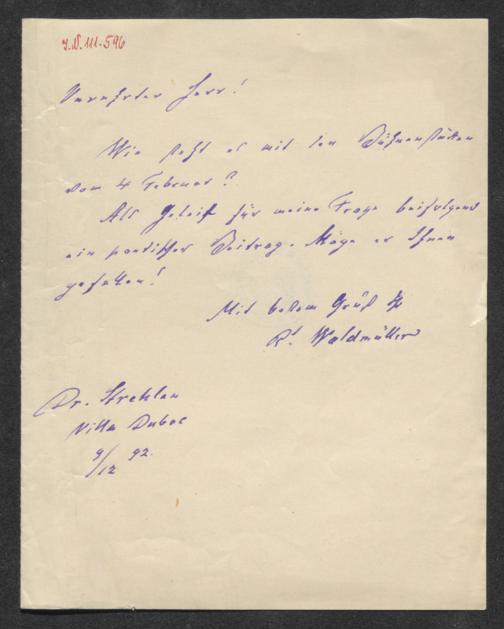 I.N. 111.596
Verehrter Herr!
Wie steht es mit den Bühnenstücken
vom 4 Februar?
Als Geleit für meine Frage beifolgend
ein poetischer Beitrag. Möge er Ihnen
gefallen!
Mit bestem Gruß
Rt. Waldmüller
Dr. Strehlen
Villa Duboc
9/12 92.